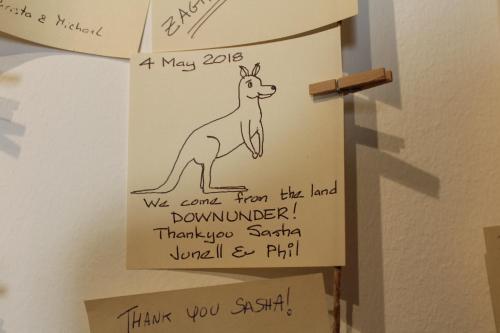 Christa & Michael
ZAGR
4 May 2018
We come from the land
DOWNUNDER!
Thankyou Sasha
Junell & Phil
THANK YOU SASHA!